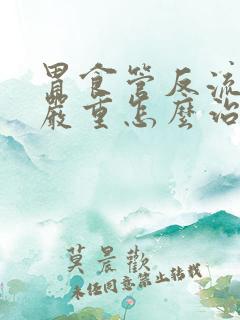 胃食管反流
嚴重怎麼治
莫晨歡
未经同意禁止转载